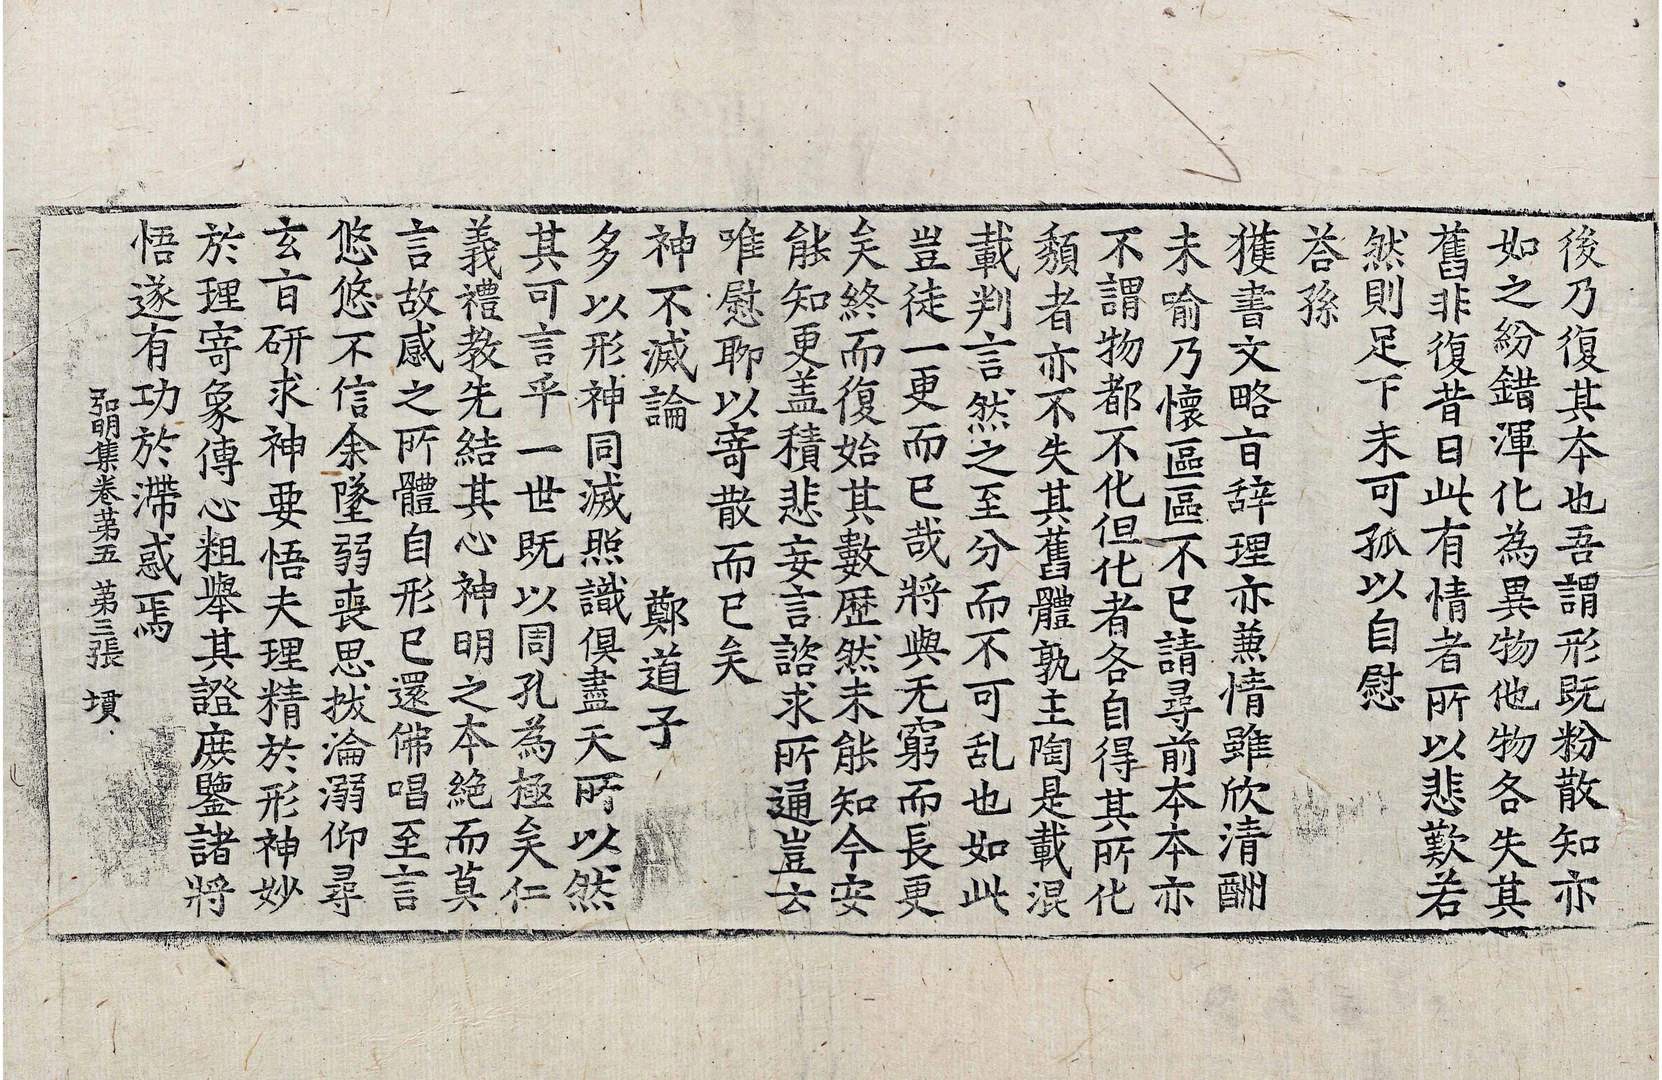 後乃復其本也吾謂形既粉散知亦
如之紛錯渾化為異物他物各失其
舊非復昔日此有情者所以悲歎若
然則足下未可孤以自慰
荅孫
獲書文略旨辞理亦兼情雖欣清酬
未喻乃懷區區不已請尋前本本亦
不謂物都不化但化者各自得其所化
頹者亦不失其舊體孰主陶是載混
載判言然之至分而不可乱也如此
豈徒一更而已哉將與无窮而長更
矣終而復始其數歷然未能知今安
能知更盖積悲妄言諮求所通豈云
唯慰聊以寄散而已矣
神不滅論　鄭道子
多以形神同滅照識俱盡夫所以然
其可言乎一世既以同孔為極矣仁
義禮教先結其心神明之本絕而莫
言故感之所體自形已還佛唱至言
悠悠不信余墜弱喪思拔淪溺仰尋
玄旨研求神要悟夫理精於形神妙
於理寄象傳心粗舉其證庶鑒諸將
悟遂有功於滯惑焉
弘明集卷苐五　第三張　墳